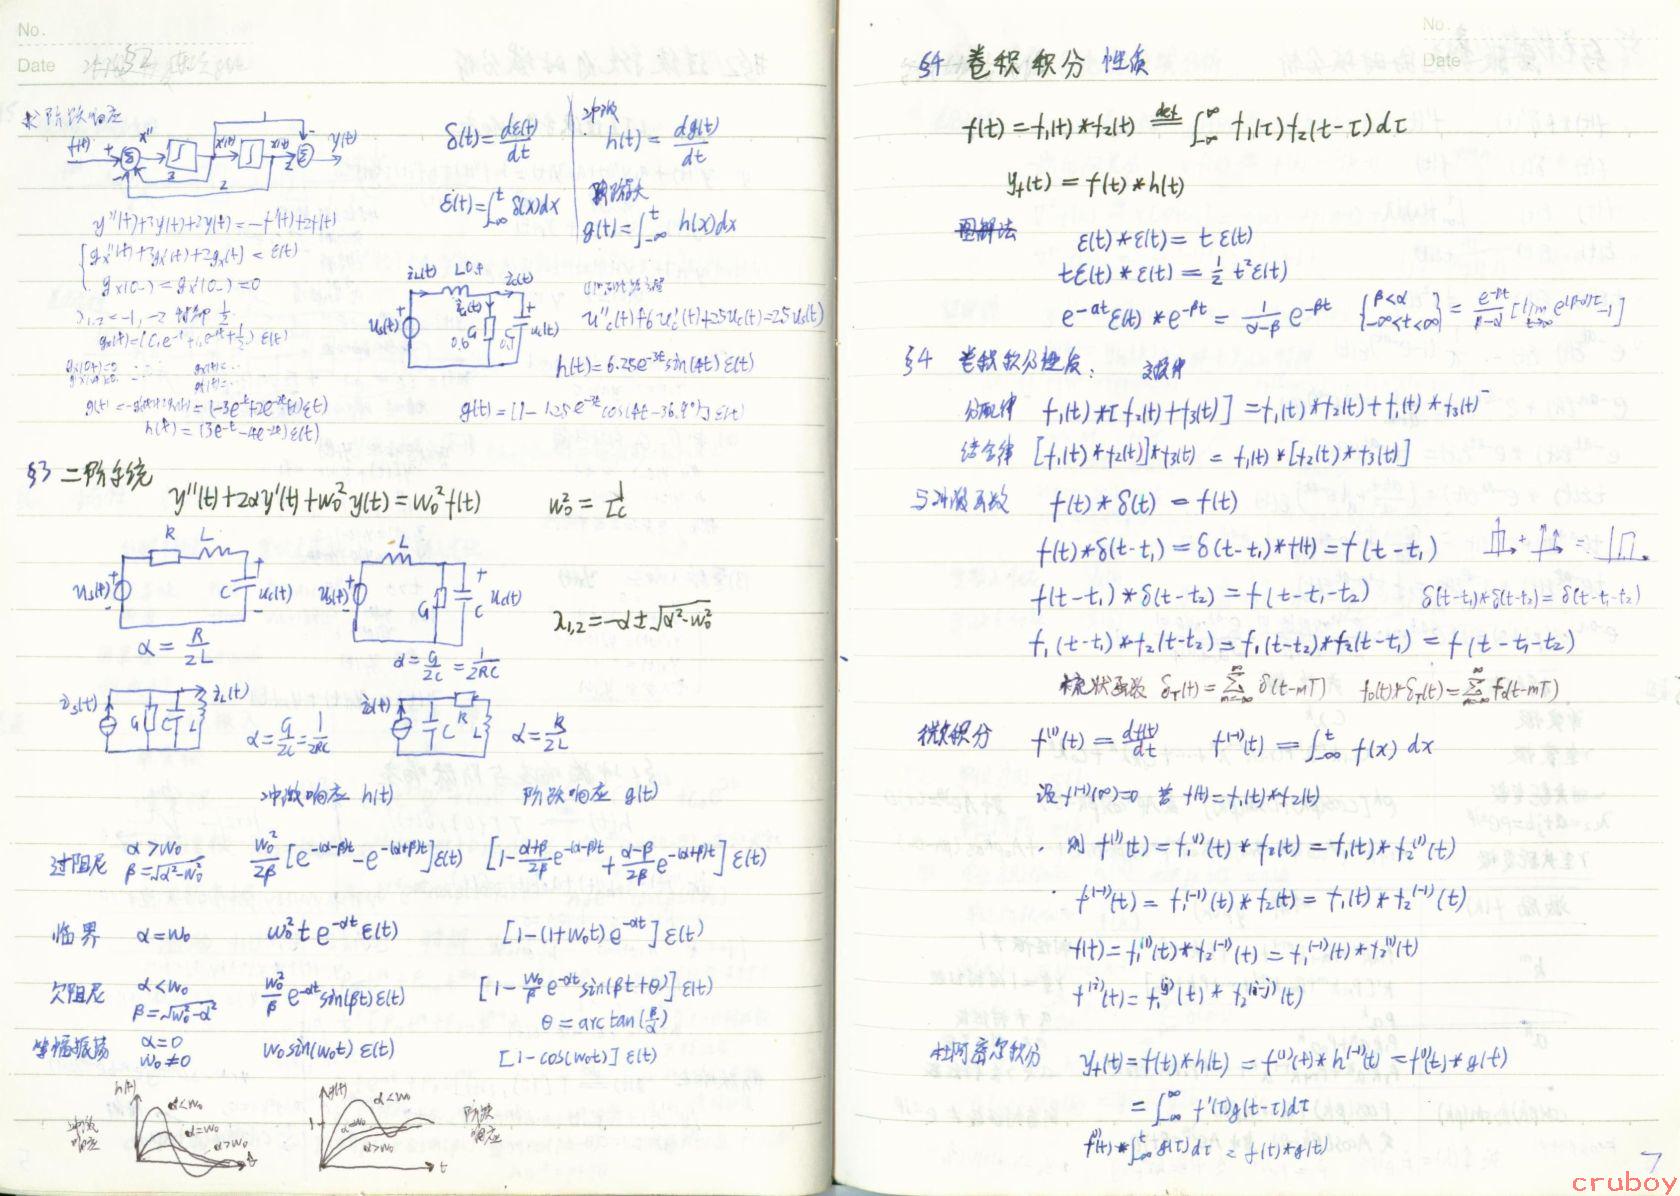 No.
Date
求阶跃响应
f(t) + Σ x'' ∫ x'(t) ∫ x(t) 2 Σ y(t)
3
2
y''(t)+3y'(t)+2y(t)=-f'(t)+2f(t)
gx''(t)+3gx'(t)+2gx(t)=ε(t)
gx(0-)=gx'(0-)=0
λ1,2=-1,-2 特解 1/2
g(t)=(-3e^-t+2e^-2t+1)ε(t)
h(t)=(3e^-t-4e^-2t)ε(t)
δ(t)=dε(t)/dt
ε(t)=∫_-∞^t δ(x)dx
冲激
h(t)=dg(t)/dt
阶跃
g(t)=∫_-∞^t h(x)dx
iL(t) L 0.4 ic(t)
us(t) G 0.6 0.1 uc(t)
u''c(t)+6u'c(t)+25uc(t)=25us(t)
h(t)=6.25e^-3t sin(4t)ε(t)
g(t)=[1-1.25e^-3t cos(4t-36.9°)]ε(t)
§3 二阶系统
y''(t)+2αy'(t)+w0²y(t)=w0²f(t) w0²=1/LC
R L
us(t) C uc(t)
α=R/2L
L
us(t) G C uc(t)
α=G/2C=1/2RC
λ1,2=-α±√(α²-w0²)
is(t) G C L iL(t)
α=G/2C=1/2RC
is(t) C R L
α=R/2L
冲激响应 h(t) 阶跃响应 g(t)
过阻尼 α>w0 β=√(α²-w0²) w0²/2β [e^-(α-β)t-e^-(α+β)t]ε(t) [1-(α+β)/2β e^-(α-β)t+(α-β)/2β e^-(α+β)t]ε(t)
临界 α=w0 w0²te^-αt ε(t) [1-(1+w0t)e^-αt]ε(t)
欠阻尼 α<w0 β=√(w0²-α²) w0²/β e^-αt sin(βt)ε(t) [1-w0/β e^-αt sin(βt+θ)]ε(t)
θ=arctan(β/α)
等幅振荡 α=0 w0≠0 w0sin(w0t)ε(t) [1-cos(w0t)]ε(t)
冲激响应 h(t) α<w0 α=w0 α>w0 t
g(t) 1 α<w0 α=w0 α>w0 t 阶跃响应
No.
Date
§4 卷积积分 性质
f(t)=f1(t)*f2(t) def= ∫_-∞^∞ f1(τ)f2(t-τ)dτ
yf(t)=f(t)*h(t)
图解法 ε(t)*ε(t)=tε(t)
tε(t)*ε(t)=1/2 t²ε(t)
e^-αt ε(t)*e^-βt=1/(α-β) e^-βt {β<α -∞<t<∞}
§4 卷积积分性质: 交换律
分配律 f1(t)*[f2(t)+f3(t)]=f1(t)*f2(t)+f1(t)*f3(t)
结合律 [f1(t)*f2(t)]*f3(t)=f1(t)*[f2(t)*f3(t)]
与冲激函数 f(t)*δ(t)=f(t)
f(t)*δ(t-t1)=δ(t-t1)*f(t)=f(t-t1)
f(t-t1)*δ(t-t2)=f(t-t1-t2) δ(t-t1)*δ(t-t2)=δ(t-t1-t2)
f1(t-t1)*f2(t-t2)=f1(t-t2)*f2(t-t1)=f(t-t1-t2)
梳状函数 δT(t)=Σ_m=-∞^∞ δ(t-mT) f0(t)*δT(t)=Σ_m=-∞^∞ f0(t-mT)
微积分 f^(1)(t)=df(t)/dt f^(-1)(t)=∫_-∞^t f(x)dx
设f^(-1)(∞)=0 若 f(t)=f1(t)*f2(t)
则 f^(1)(t)=f1^(1)(t)*f2(t)=f1(t)*f2^(1)(t)
f^(-1)(t)=f1^(-1)(t)*f2(t)=f1(t)*f2^(-1)(t)
f(t)=f1^(1)(t)*f2^(-1)(t)=f1^(-1)(t)*f2^(1)(t)
f^(i)(t)=f1^(j)(t)*f2^(i-j)(t)
杜阿密尔积分 yf(t)=f(t)*h(t)=f^(1)(t)*h^(-1)(t)=f'(t)*g(t)
=∫_-∞^∞ f'(τ)g(t-τ)dτ
7
cruboy